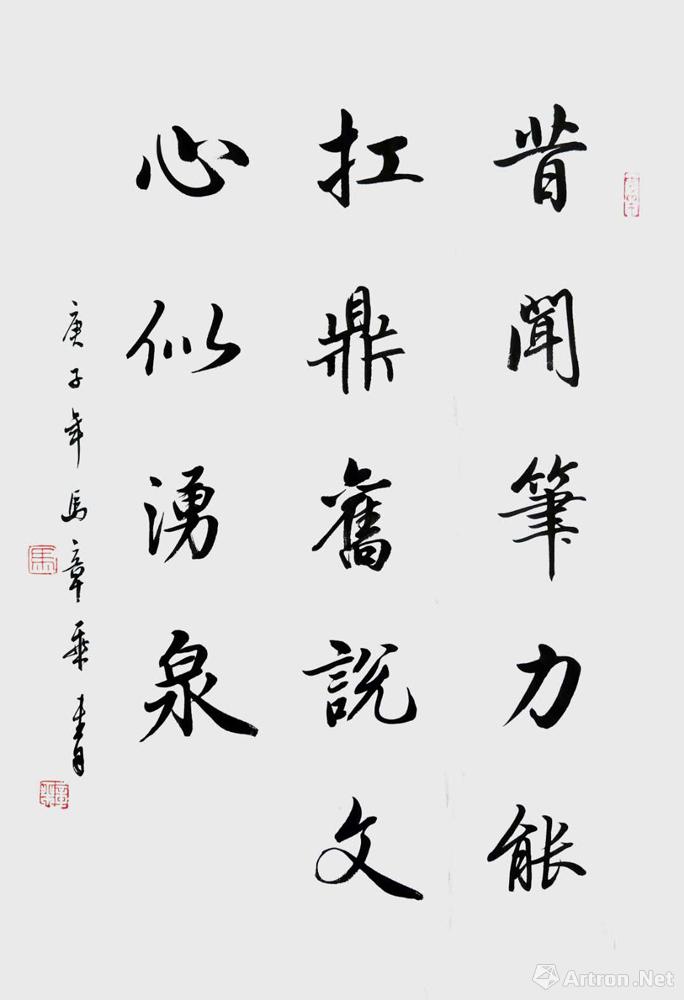 昔聞筆力能
扛鼎舊說文
心似湧泉
庚子年馬章乘書
馬
Artron.Net